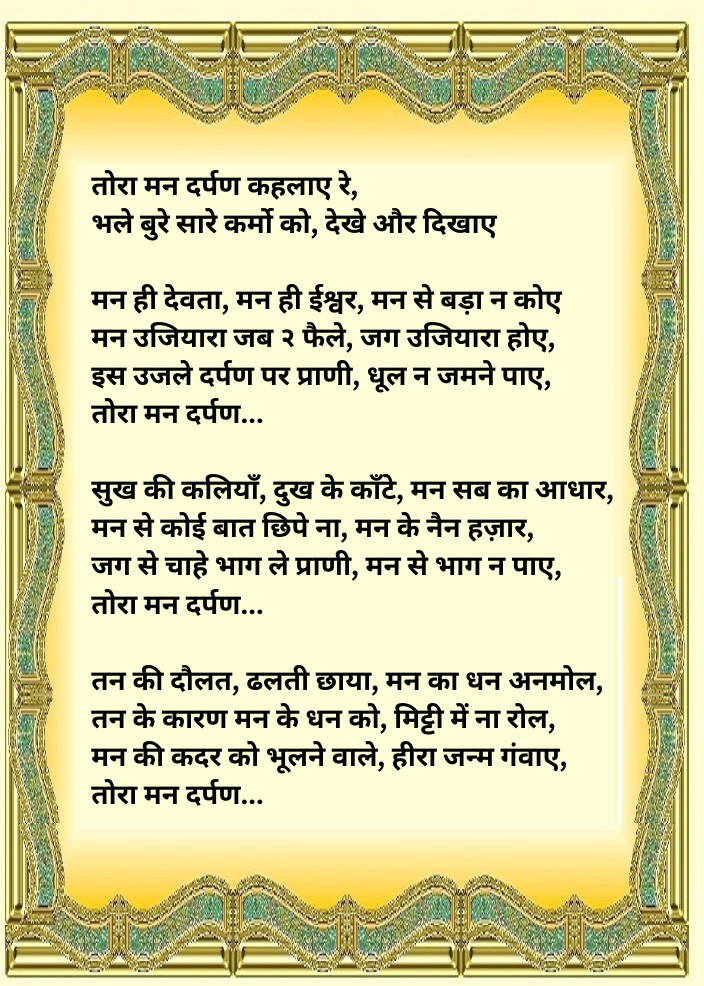 तोरा मन दर्पण कहलाए रे,
भले बुरे सारे कर्मो को, देखे और दिखाए
मन ही देवता, मन ही ईश्वर, मन से बड़ा न कोए
मन उजियारा जब २ फैले, जग उजियारा होए,
इस उजले दर्पण पर प्राणी, धूल न जमने पाए,
तोरा मन दर्पण...
सुख की कलियाँ, दुख के काँटे, मन सब का आधार,
मन से कोई बात छिपे ना, मन के नैन हज़ार,
जग से चाहे भाग ले प्राणी, मन से भाग न पाए,
तोरा मन दर्पण...
तन की दौलत, ढलती छाया, मन का धन अनमोल,
तन के कारण मन के धन को, मिट्टी में ना रोल,
मन की कदर को भूलने वाले, हीरा जन्म गंवाए,
तोरा मन दर्पण...